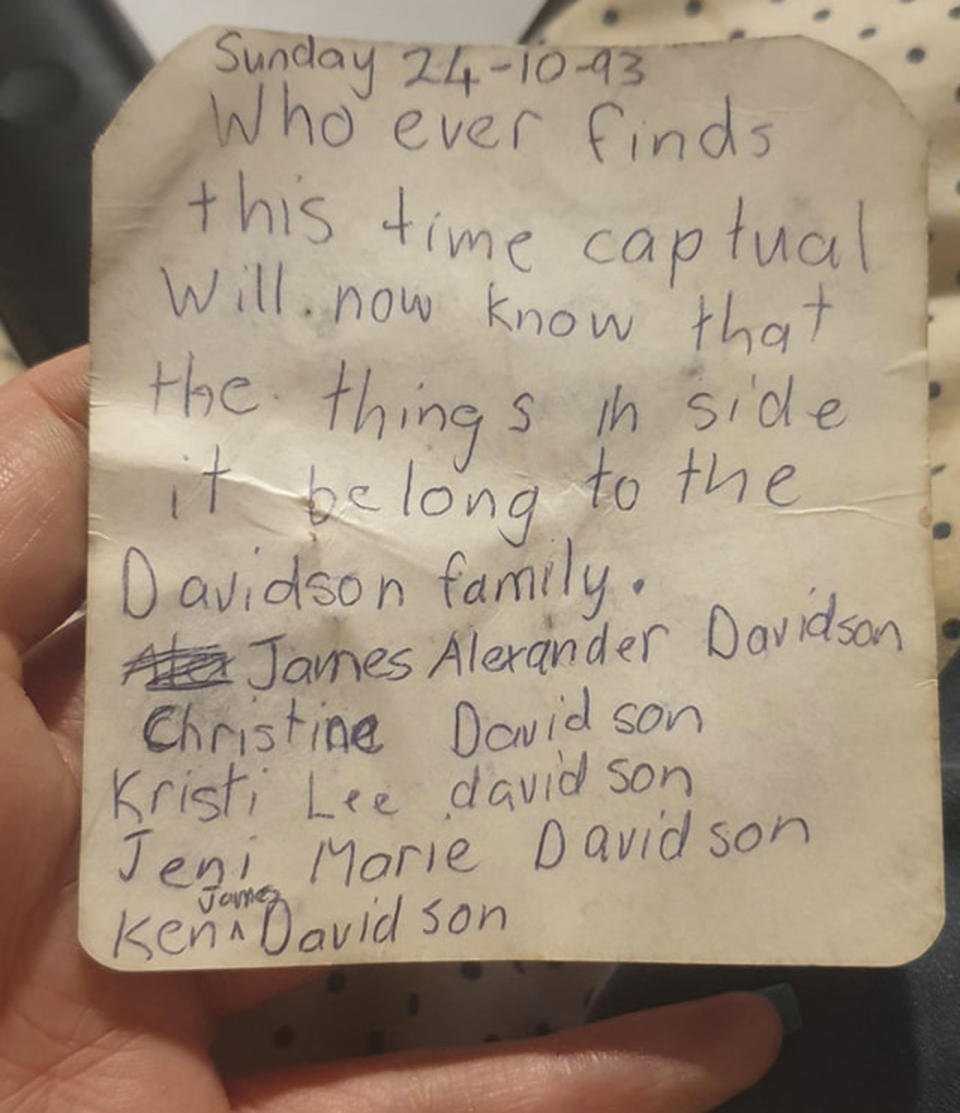 Sunday 24-10-93
Who ever finds
this time captual
Will now know that
the things in side
it belong to the
Davidson family.
James Alexander Davidson
Christine Davidson
Kristi Lee davidson
Jeni Marie Davidson
Ken ^ James Davidson